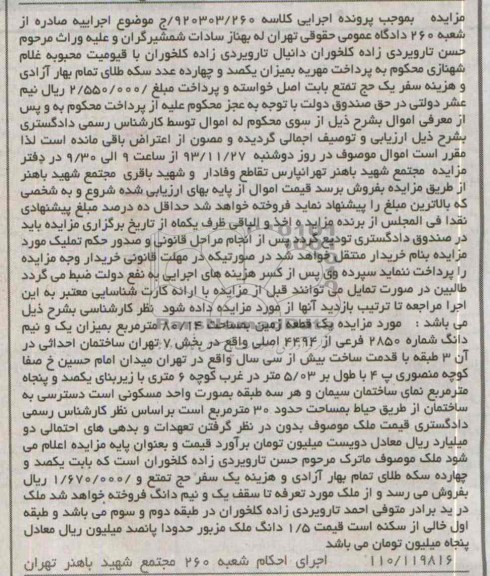 مزایده بموجب پرونده اجرایی کلاسه ۹۲۰۳۰۳/۲۶۰/ج موضوع اجراییه صادره از
شعبه ۲۶۰ دادگاه عمومی حقوقی تهران له بهناز سادات شمشیرگران و علیه وراث مرحوم
حسن تارویردی زاده کلخوران دانیال تارویردی زاده کلخوران با قیومیت محبوبه غلام
شهنازی محکوم به پرداخت مهریه بمیزان یکصد و چهارده عدد سکه طلای تمام بهار آزادی
و هزینه سفر یک حج تمتع بابت اصل خواسته و پرداخت مبلغ ۲/۵۵۰/۰۰۰ ریال نیم
عشر دولتی در حق صندوق دولت با توجه به عجز محکوم علیه از پرداخت محکوم به و پس
از معرفی اموال بشرح ذیل از سوی محکوم له اموال توسط کارشناس رسمی دادگستری
بشرح ذیل ارزیابی و توصیف اجمالی گردیده و مصون از اعتراض باقی مانده است لذا
مقرر است اموال موصوف در روز دوشنبه ۹۳/۱۱/۲۷ از ساعت ۹ الی ۹/۳۰ در دفتر
مزایده مجتمع شهید باهنر تهرانپارس تقاطع وفادار و شهید باقری مجتمع شهید باهنر
از طریق مزایده بفروش برسد قیمت اموال از پایه بهای ارزیابی شده شروع و به شخصی
که بالاترین مبلغ را پیشنهاد نماید فروخته خواهد شد حداقل ده درصد مبلغ پیشنهادی
نقدا فی المجلس از برنده مزایده اخذ و الباقی ظرف یکماه از تاریخ برگزاری مزایده باید
در صندوق دادگستری تودیع گردد پس از انجام مراحل قانونی و صدور حکم تملیک مورد
مزایده بنام خریدار منتقل خواهد شد در صورتیکه در مهلت قانونی خریدار وجه مزایده
را پرداخت ننماید سپرده وی پس از کسر هزینه های اجرایی به نفع دولت ضبط می گردد
طالبین در صورت تمایل می توانند قبل از مزایده با ارائه کارت شناسایی معتبر به این
اجرا مراجعه تا ترتیب بازدید آنها از مورد مزایده داده شود نظر کارشناسی بشرح ذیل
می باشد : مورد مزایده یک قطعه زمین بمساحت ۸۰/۱۴ مترمربع بمیزان یک و نیم
دانگ شماره ۲۸۵۰ فرعی از ۴۴۹۴ اصلی واقع در بخش ۷ تهران ساختمان احداثی در
آن ۳ طبقه با قدمت ساخت بیش از سی سال واقع در تهران میدان امام حسین خ صفا
کوچه منصوری پ ۴ با طول بر ۵/۰۳ متر در غرب کوچه ۶ متری با زیربنای یکصد و پنجاه
مترمربع نمای ساختمان سیمان و هر سه طبقه بصورت واحد مسکونی است دسترسی به
ساختمان از طریق حیاط بمساحت حدود ۳۰ مترمربع است براساس نظر کارشناس رسمی
دادگستری قیمت ملک موصوف بدون در نظر گرفتن تعهدات و بدهی های احتمالی دو
میلیارد ریال معادل دویست میلیون تومان برآورد قیمت و بعنوان پایه مزایده اعلام می
شود ملک موصوف ماترک مرحوم حسن تارویردی زاده کلخوران است که بابت یکصد و
چهارده سکه طلای تمام بهار آزادی و هزینه یک سفر حج تمتع و ۱/۶۷۰/۰۰۰ ریال
بفروش می رسد و از ملک مورد تعرفه تا سقف یک و نیم دانگ فروخته خواهد شد ملک
در ید برادر متوفی احمد تارویردی زاده کلخوران در طبقه دوم و سوم می باشد و طبقه
اول خالی از سکنه است قیمت ۱/۵ دانگ ملک مزبور حدودا پانصد میلیون ریال معادل
پنجاه میلیون تومان می باشد
۱۱۰/۱۱۹۸۱۶ اجرای احکام شعبه ۲۶۰ مجتمع شهید باهنر تهران